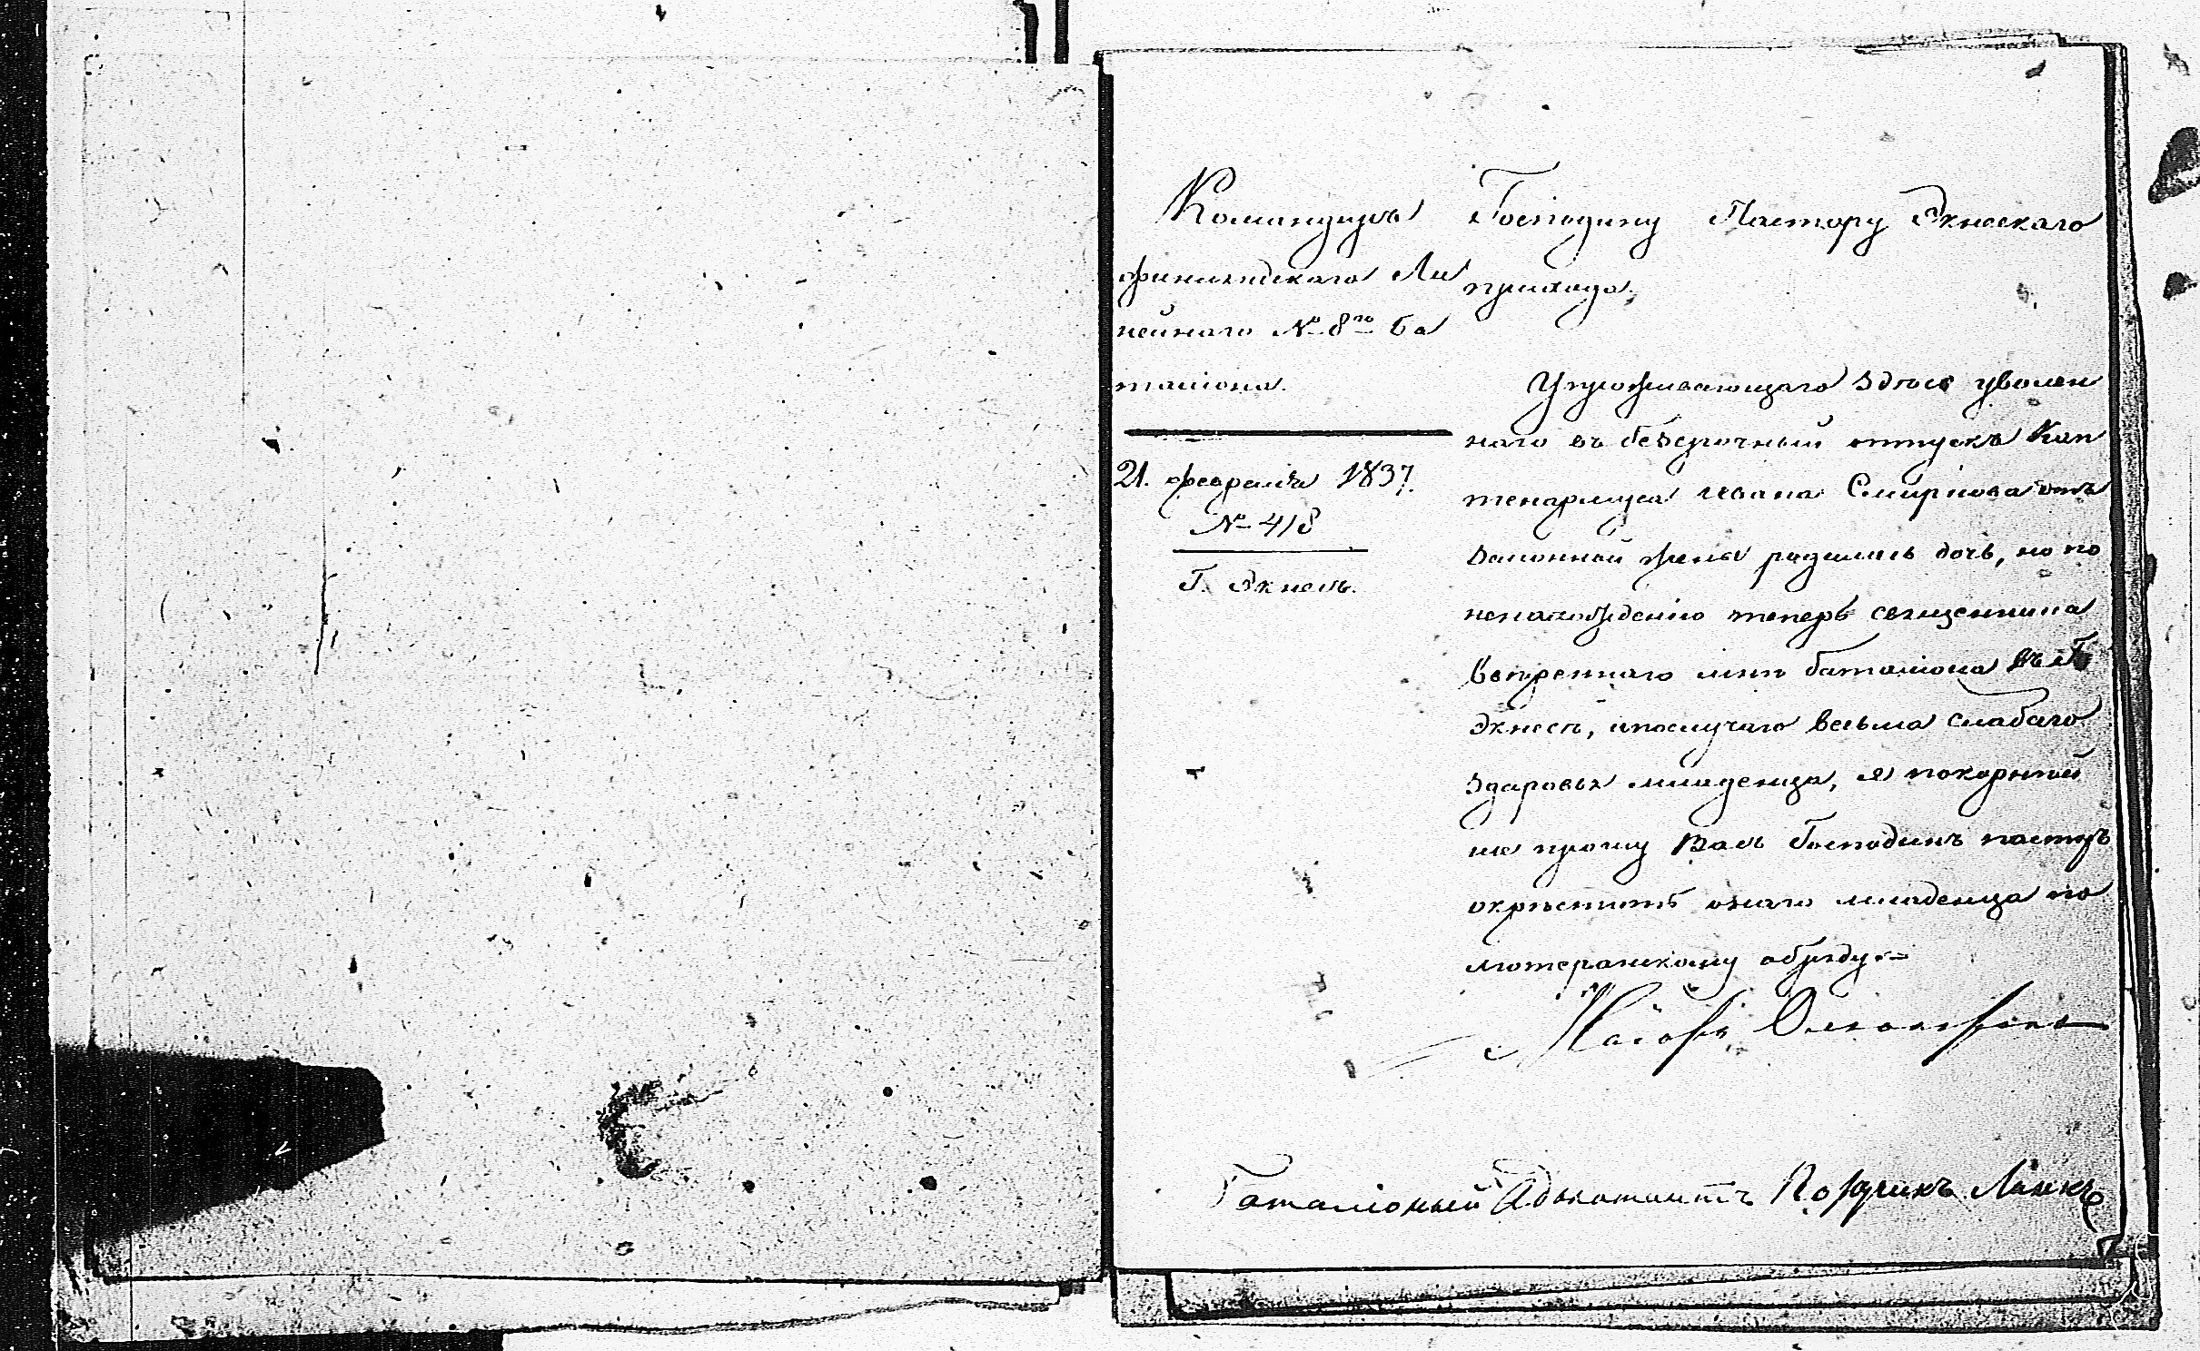 Командиръ
финляндскаго Ли
нейнаго № 8го ба
таліона.
21. февраля 1837.
№ 418
Г. Экнесъ.
Господину Пастору Экнескаго
прихода.
У проживающаго здѣсь уволен
наго въ безсрочный отпускъ Кап
тенармуса Ивана Смирнова отъ
законной жены родилась дочь, но по
ненахожденію теперь священника
ввѣреннаго мнѣ баталіона въ Г.
Экнесѣ, и по случаю весьма слабаго
здаровья младенца, я покорнѣй
ше прошу Васъ Господинъ пасторъ
окрѣстить онаго младенца по
лютеранскому обряду.=
Маіоръ
Баталіоный Адъютантъ Поручикъ